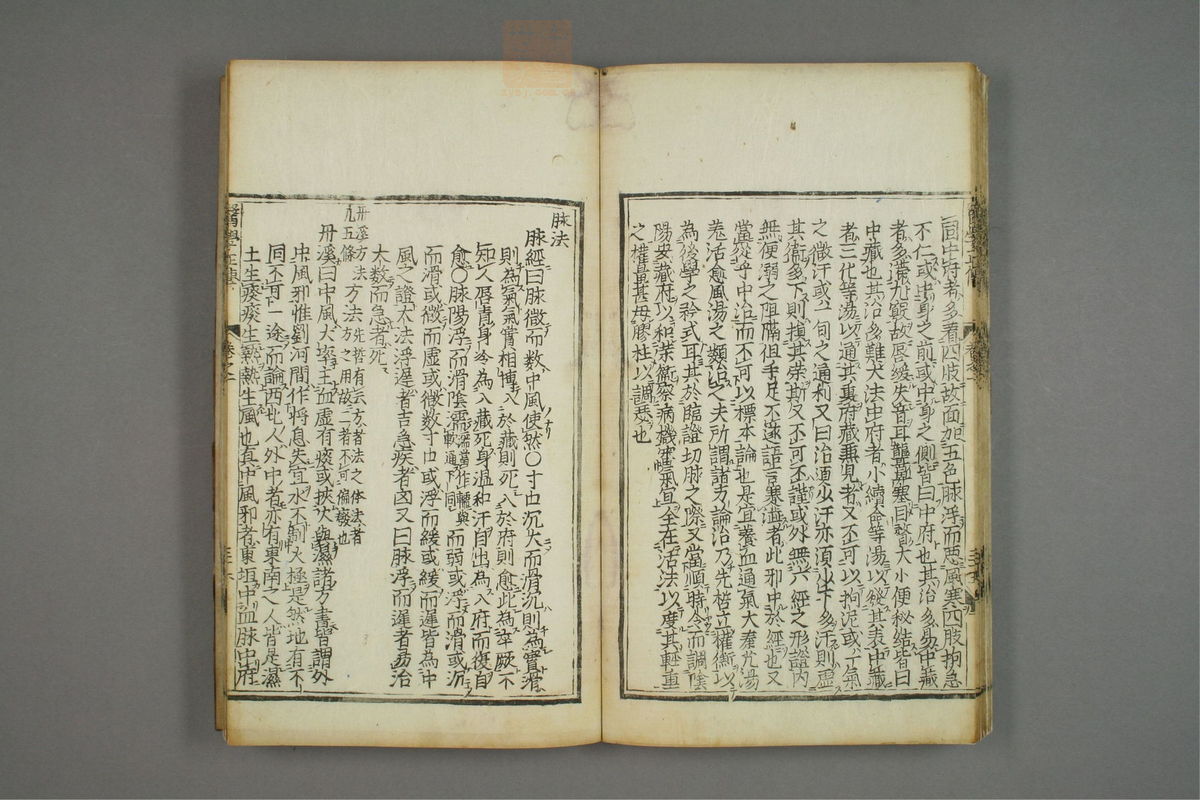 中府者多着四肢故面加五色脉浮而惡風寒四肢拘急
不仁或中身之前或中身之側皆曰中府也其治多易中藏
者多滯九竅故唇緩失音耳聾鼻塞目瞀大小便秘結皆曰
中藏也其治多難大法中府者小續命等湯以發其表中藏
者三化等湯以通其裏府藏兼見者又不可以拘泥或一氣
之微汗或一旬之通利又曰治須少汗亦須少下多汗則虚
其衞多下則損其榮斯又不可不謹或外無六經之形證内
無便溺之阻隔但手足不遂語言蹇澁者此邪中於經也又
當從乎中治而不可以標本論也是宜養血通氣大秦艽湯
羗活愈風湯之類治之夫所謂諸方論治乃先哲立權衡以
為後學之矜式耳其於臨證切脉之際又當順時令而調陰
陽安藏府以和榮衞察病機審氣宜全在活法以度其輕重
之權量甚毋膠柱以調瑟也
醫學正傳 卷之一
脉法
脉經曰脉微而數中風使然〇寸口沉大而滑沉則為實滑
則為氣氣實相博入於藏則死入於府則愈此為卒厥不
知人唇青身冷為入藏死身温和汗自出為入府而復自
愈〇脉陽浮而滑陰濡濡當作軟與軟通下同而弱或浮而滑或沉
而滑或微而虚或微數寸口或浮而緩或緩而遲皆為中
風之證大法浮遲者吉急疾者凶又曰脉浮而遲者易治
大數而急者死
丹溪方法凡五條 方法先哲有云方者法之体法者方之用故二者不可偏廢也
丹溪曰中風大率主血虚有痰或挾火與濕諸方書皆謂外
中風邪惟劉河間作將息失宜水不制火極是然地有不
同不可一途而論西北人外中者亦有東南之人皆是濕
土生痰痰生熱熱生風也真中風邪者東垣中血脉中府
醫學正傳 卷之一